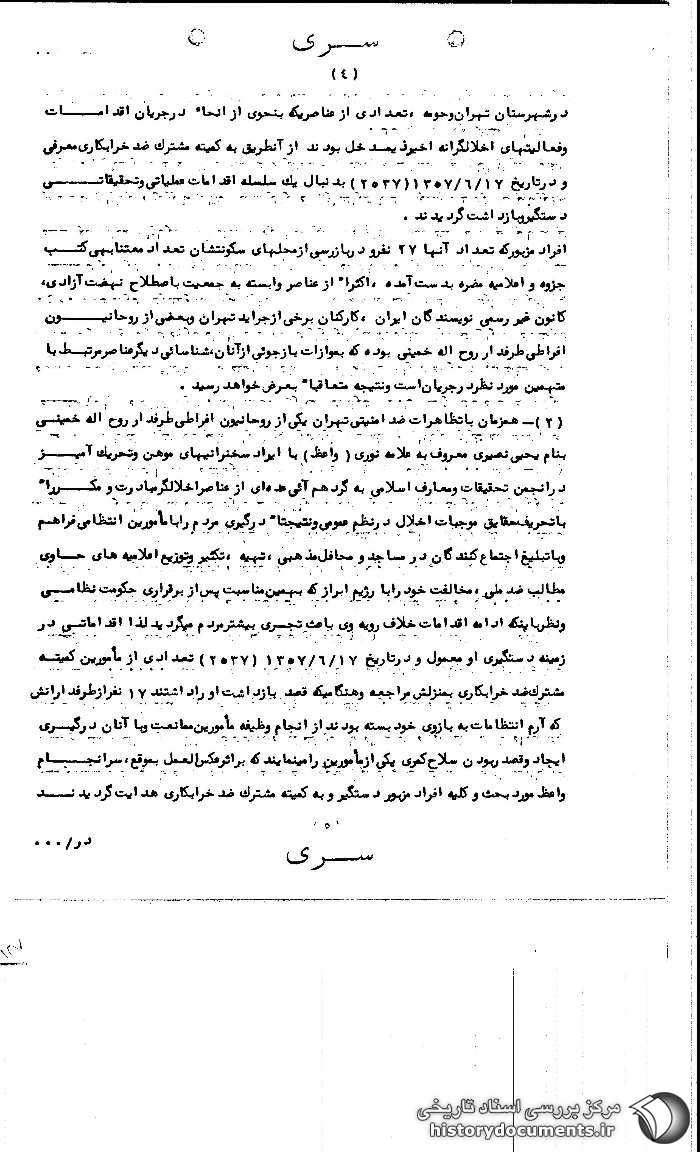 سری
(٤)
در شهرستان تهران وحومه ، تعدادی از عناصریکه بنحوی از انحا\* در جریان اقدامات
وفعالیتهای اخلالگرانه اخیر ذیمدخل بودند از آنطریق به کمیته مشترك ضد خرابکاری معرفی
و در تاریخ ١٣٥٧/٦/١٧ (٢٥٣٧) بدنبال يك سلسله اقدامات عملیاتی وتحقیقاتی
دستگیر وبازداشت گردیدند .
افراد مزبور که تعداد آنها ٢٧ نفر و در بازرسی از محلهای سکونتشان تعداد معتنابهی کتب
جزوه و اعلامیه مضره بدست آمده ، اکثرا" از عناصر وابسته به جمعیت باصطلاح نهضت آزادی،
کانون غیر رسمی نویسندگان ایران ، کارکنان برخی از جراید تهران وبعضی از روحانیون
افراطی طرفدار روح اله خمینی بوده که بموازات بازجوئی از آنان، شناسائی دیگر عناصر مرتبط با
متهمین مورد نظر در جریان است ونتیجه متعاقبا" بعرض خواهد رسید .
(٢)ـ همزمان با تظاهرات ضد امنیتی تهران یکی از روحانیون افراطی طرفدار روح اله خمینی
بنام یحیی نصیری معروف به علامه نوری ( واعظ ) با ایراد سخنرانیهای موهن وتحریك آمیز
در انجمن تحقیقات ومعارف اسلامی به گردهم آئی عده‌ای از عناصر اخلالگر مبادرت و مکررا"
با تحریف حقایق موجبات اخلال در نظم عمومی ونتیجتا" درگیری مردم را با مأمورین انتظامی فراهم
وبا تبلیغ اجتماع کنندگان در مساجد و محافل مذهبی ، تهیه ، تکثیر وتوزیع اعلامیه های حاوی
مطالب ضد ملی ، مخالفت خود را با رژیم ابراز که بهمین مناسبت پس از برقراری حکومت نظامی
ونظر باینکه ادامه اقدامات خلاف رویه وی باعث تجری بیشتر مردم میگردید لذا اقداماتی در
زمینه دستگیری او معمول و در تاریخ ١٣٥٧/٦/١٧ (٢٥٣٧) تعدادی از مأمورین کمیته
مشترك ضد خرابکاری بمنزلش مراجعه وهنگامیکه قصد بازداشت او را داشتند ١٧ نفر از طرفدارانش
که آرم انتظامات به بازوی خود بسته بودند از انجام وظیفه مأمورین ممانعت وبا آنان درگیری
ایجاد وقصد ربودن سلاح کمری یکی از مأمورین را مینمایند که براثر عکس العمل بموقع ، سرانجام
واعظ مورد بحث و کلیه افراد مزبور دستگیر و به کمیته مشترك ضد خرابکاری هدایت گردیدند
در/٠٠٠
سری
مرکز بررسی اسناد تاریخی
historydocuments.ir